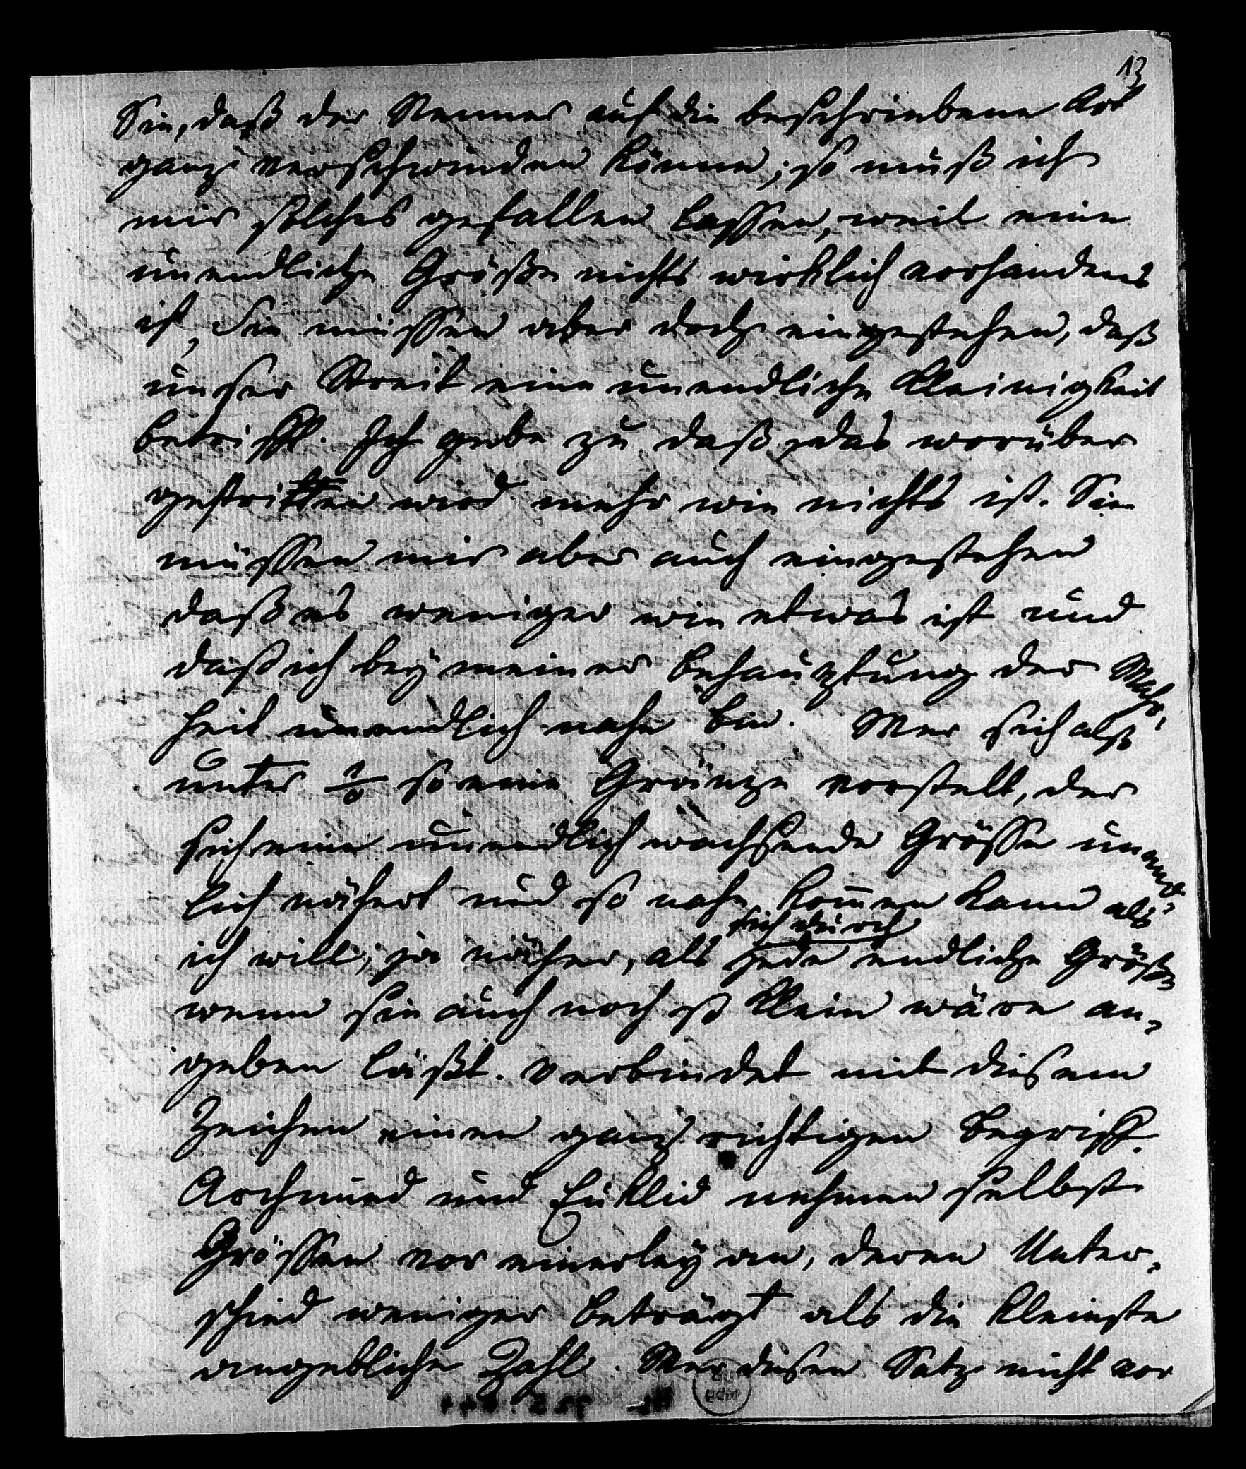 13
Sie, daß der Nenner auf die beschriebene Art
ganz verschwinden könne; so muß ich
mir solches gefallen lassen, weil eine
unendliche Größe nichts wirklich vorhandens
ist, Sie müssen aber doch eingestehen, daß
unser Streit eine unendliche Kleinigkeit
betrifft. Ich gebe zu daß das worüber
gestritten wird mehr wie nichts ist. Sie
müssen mir aber auch eingestehen
daß es weniger wie etwas ist und
daß ich bey meiner Behauptung der Wahr-
heit unendlich nahe bin. Wer sich also
unter so eine Gränze vorstelt, der
sich eine unendlich wachsende Grösse unend-
lich nähert und so nahe kommen kann als
ich will; ja näher, als sich durch jede endliche Größe
wenn sie auch noch so klein wäre an-
geben läßt. verbindet mit diesem
Zeichen einen ganz richtigen Begriff.
Archimed und Euklid nehmen selbst
Grössen vor einerley an, deren Unter-
schied weniger beträgt als die kleinste
angebliche Zahl. Wer diesen Satz nicht vor